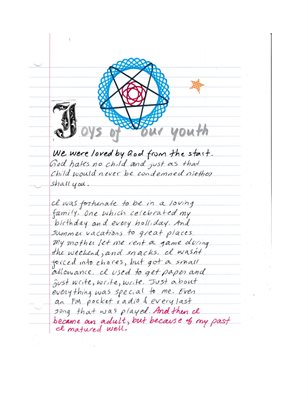 Joys of our youth
We were loved by God from the start.
God hates no child and just as that
Child would never be condemned niether
shall you.
I was fortunate to be in a loving
family. One which celebrated my
birthday and every holiday. And
summer vacations to great places.
My mother let me rent a game during
the weekend, and snacks. I wasn't
forced into chores, but got a small
allowance. I used to get paper and
just write, write, write. Just about
everything was special to me. Even
an FM pocket radio & every last
song that was played. And then I
became an adult, but because of my past
I matured well.